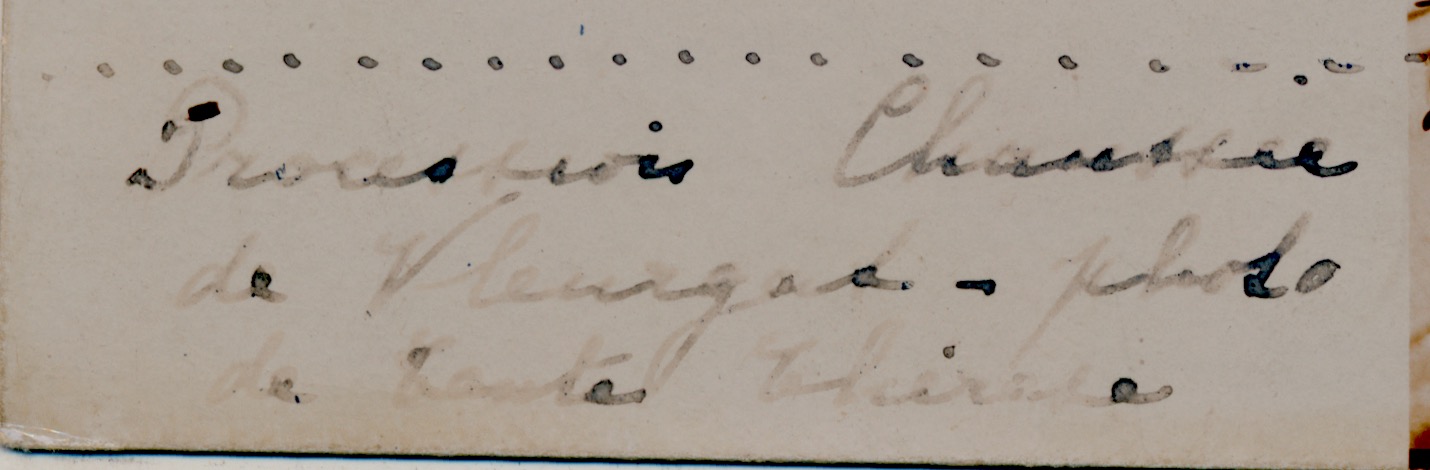 Procession Chaussée
de Vleurgat - photo
de tante Thérèse